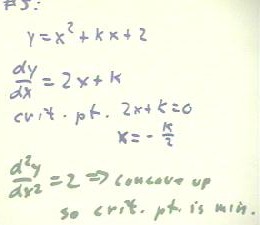 #5:
y = x² + kx + 2
dy/dx = 2x + k
crit. pt. 2x + k = 0
x = - k/2
d²y/dx² = 2 ⇒ concave up
so crit. pt. is min.